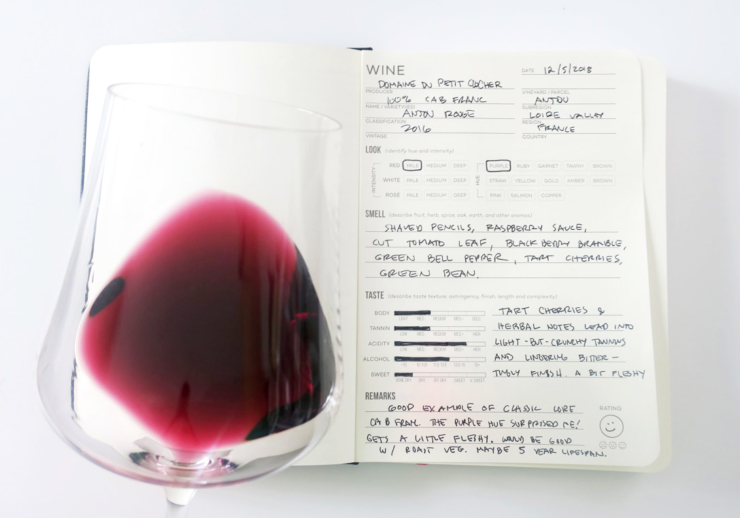 WINE
DATE 12/5/2018
DOMAINE DU PETIT CLOCHER
PRODUCER
VINEYARD / PARCEL
100% CAB FRANC
ANJOU
NAME / VARIETY(IES)
SUBREGION
ANJOU ROUGE
LOIRE VALLEY
CLASSIFICATION
REGION
2016
FRANCE
VINTAGE
COUNTRY
LOOK (identify hue and intensity)
INTENSITY
RED PALE MEDIUM DEEP
WHITE PALE MEDIUM DEEP
ROSÉ PALE MEDIUM DEEP
HUE
PURPLE RUBY GARNET TAWNY BROWN
STRAW YELLOW GOLD AMBER BROWN
PINK SALMON COPPER
SMELL (describe fruit, herb, spice, oak, earth, and other aromas)
SHAVED PENCILS, RASPBERRY SAUCE,
CUT TOMATO LEAF, BLACKBERRY BRAMBLE,
GREEN BELL PEPPER, TART CHERRIES,
GREEN BEAN.
TASTE (describe taste texture, astringency, finish, length and complexity)
BODY
TANNIN
ACIDITY
ALCOHOL
SWEET
TART CHERRIES &
HERBAL NOTES LEAD INTO
LIGHT-BUT-CRUNCHY TANNINS
AND LINGERING BITTER-
FINISH. A BIT FLESHY
REMARKS
GOOD EXAMPLE OF CLASSIC LOIRE
CAB FRANC. THE PURPLE HUE SURPRISED ME!
GETS A LITTLE FLESHY. WOULD BE GOOD
W/ ROAST VEG. MAYBE 5 YEAR LIFESPAN.
RATING